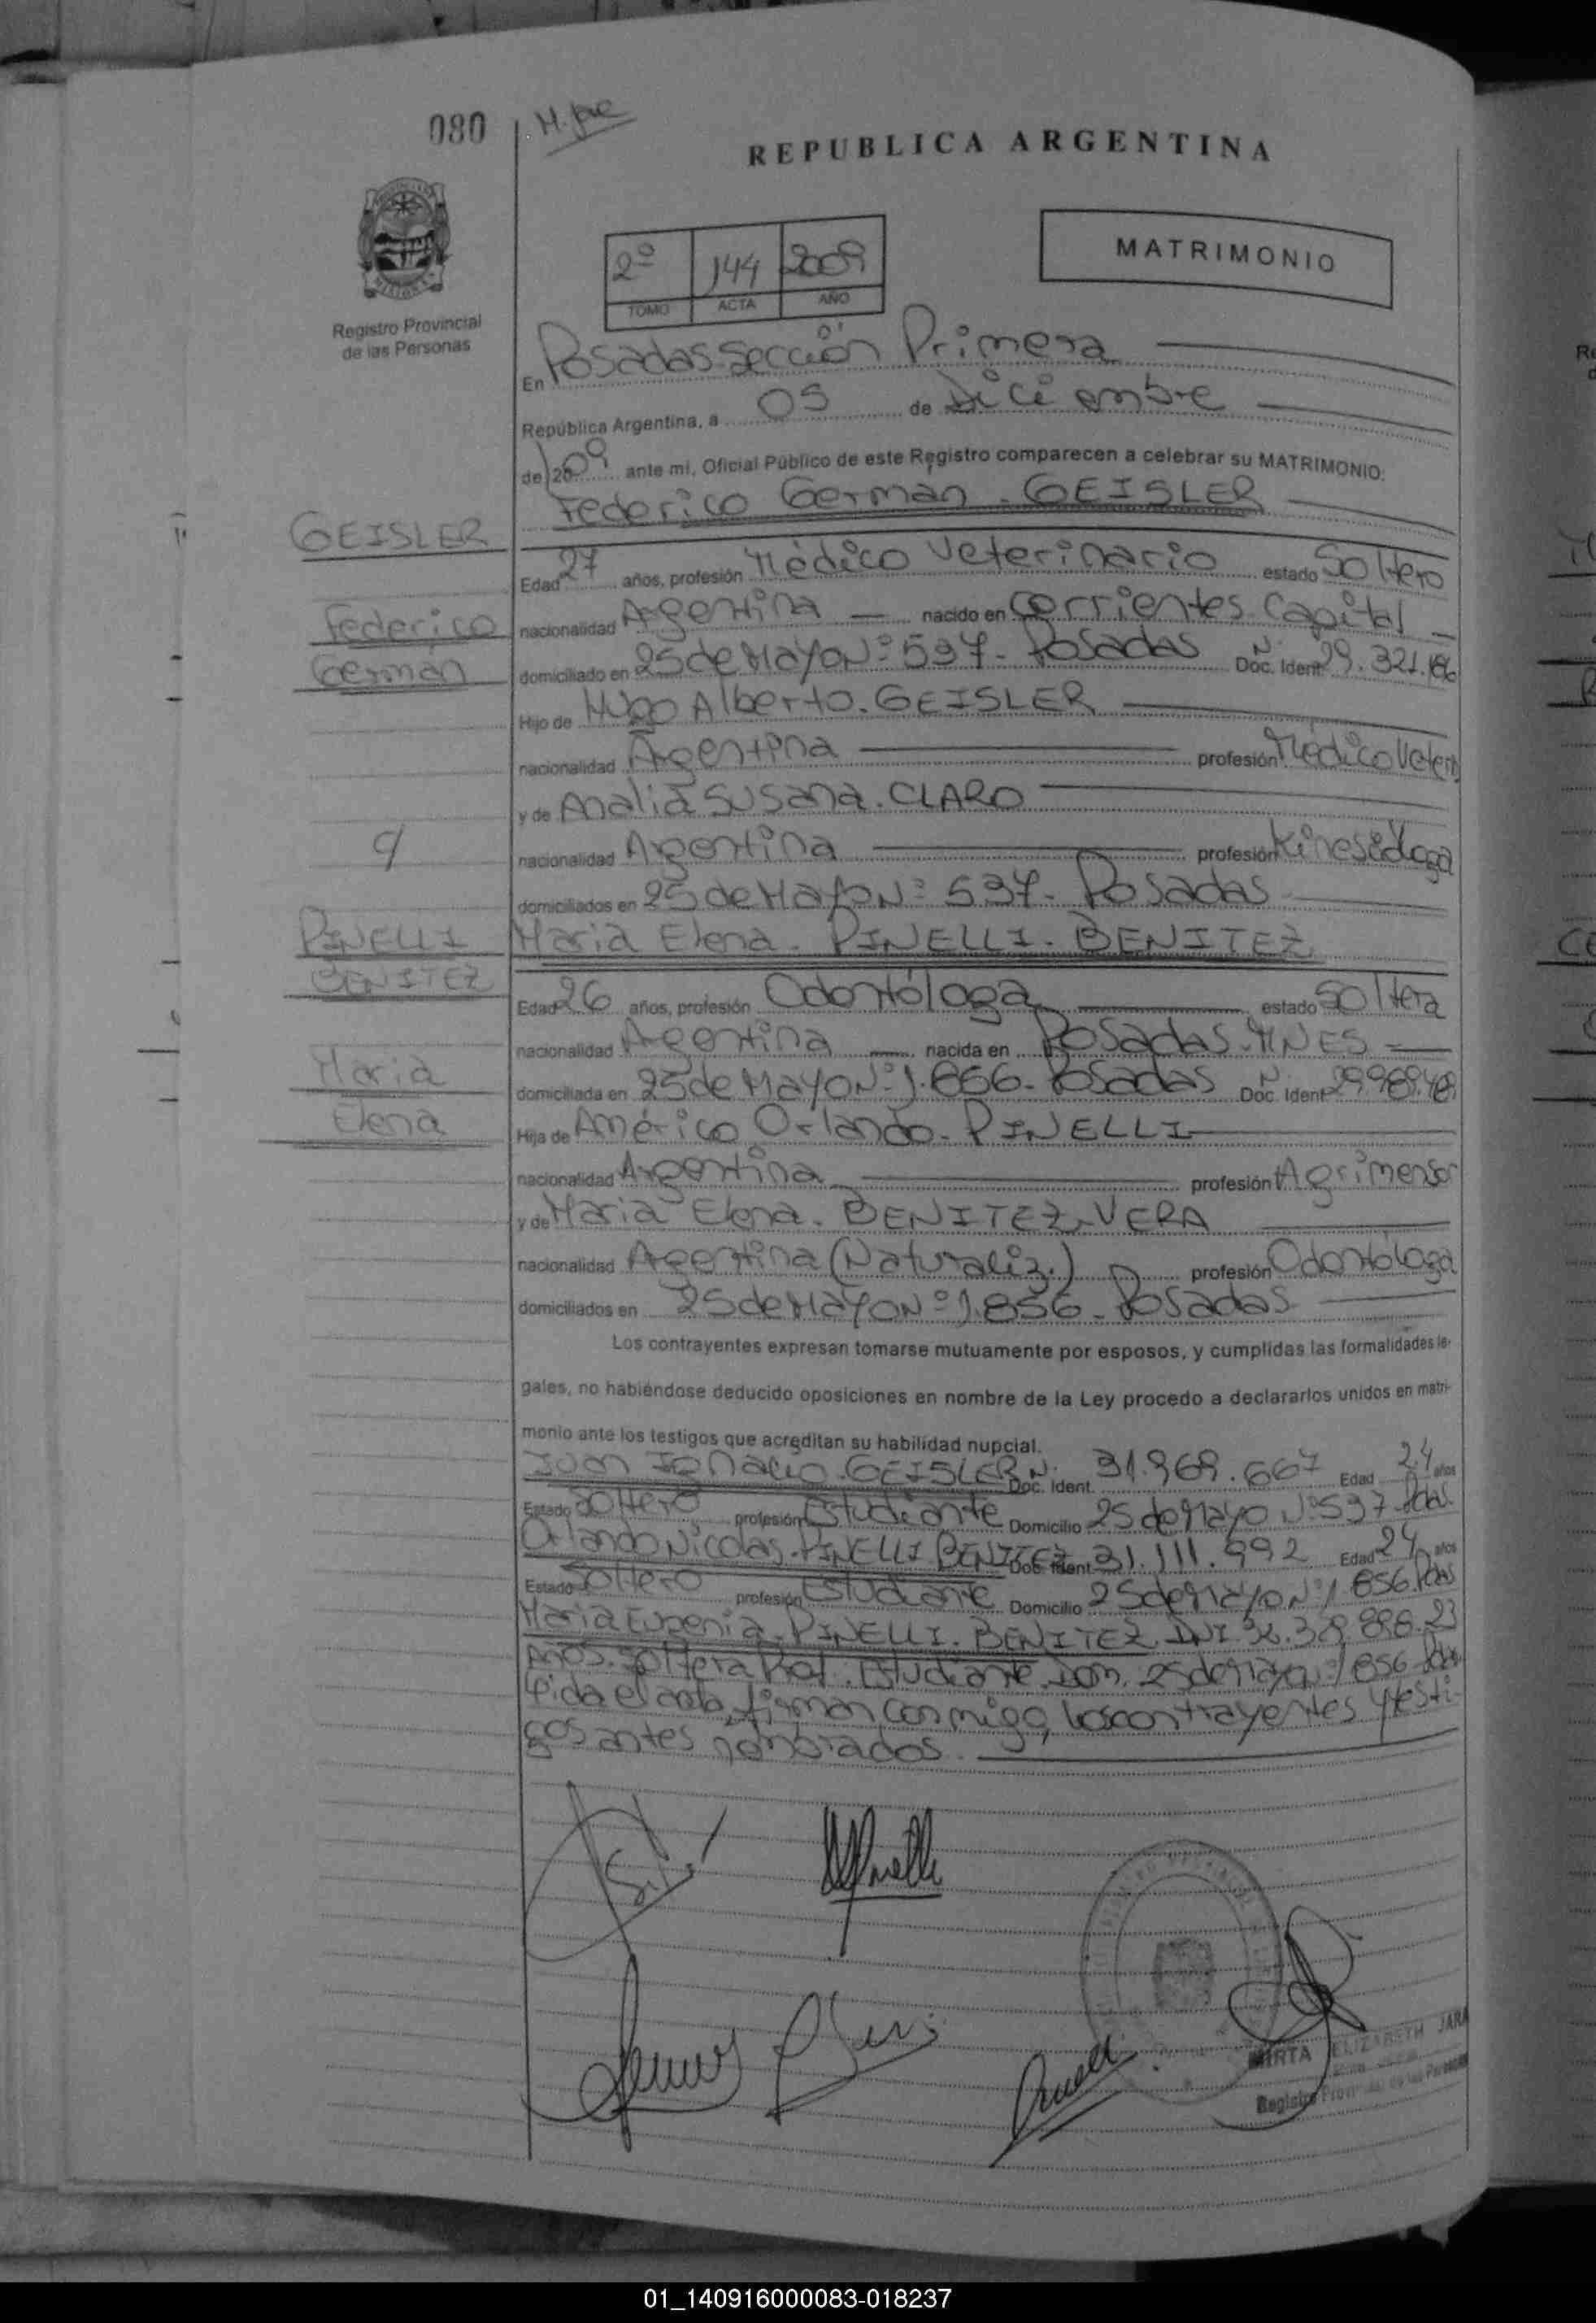 080
REPUBLICA ARGENTINA
Registro Provincial
de las Personas
2º 144 2009
TOMO ACTA AÑO
MATRIMONIO
En Posadas Sección Primera
República Argentina, a 05 de Diciembre
de 2009 ante mi, Oficial Público de este Registro comparecen a celebrar su MATRIMONIO:
Federico German GEISLER
GEISLER
Federico
Germán
Edad 27 años, profesión Médico Veterinario estado Soltero
nacionalidad Argentina nacido en Corrientes Capital
domiciliado en 25 de Mayo Nº 597 - Posadas Doc. Ident. N. 29.321.
Hijo de Hugo Alberto GEISLER
nacionalidad Argentina profesión Médico Veter
y de Analia Susana CLARO
nacionalidad Argentina profesión Kinesióloga
domiciliados en 25 de Mayo Nº 597 - Posadas
c/
PINELLI
BENITEZ
Maria
Elena
Maria Elena - PINELLI - BENITEZ
Edad 26 años, profesión Odontóloga estado Soltera
nacionalidad Argentina nacida en Posadas - MNES
domiciliada en 25 de Mayo Nº 1.856 - Posadas Doc. Ident. N.
Hija de Américo Orlando - PINELLI
nacionalidad Argentina profesión Agrimensor
y de Maria Elena - BENITEZ VERA
nacionalidad Argentina (Naturaliz.) profesión Odontóloga
domiciliados en 25 de Mayo Nº 1.856 - Posadas
Los contrayentes expresan tomarse mutuamente por esposos, y cumplidas las formalidades le-
gales, no habiéndose deducido oposiciones en nombre de la Ley procedo a declararlos unidos en matri-
monio ante los testigos que acreditan su habilidad nupcial.
Juan Ignacio GEISLER N. Doc. Ident. 31.969.667 Edad 24 años
Estado Soltero profesión Estudiante Domicilio 25 de Mayo Nº 597 Pdas
Orlando Nicolas - PINELLI BENITEZ Doc. Ident. 31.111.992 Edad 24 años
Estado Soltero profesión Estudiante Domicilio 25 de Mayo Nº 1.856 Pdas
Maria Eugenia - PINELLI - BENITEZ DNI 23
Años. Soltera Prof. Estudiante. Dom. 25 de Mayo Nº 1856 Pdas
Leida el acta, firman conmigo, los contrayentes y testi-
gos antes nombrados.
MIRTA ELIZABETH JARA
Registro Provincial de las Personas
01_140916000083-018237